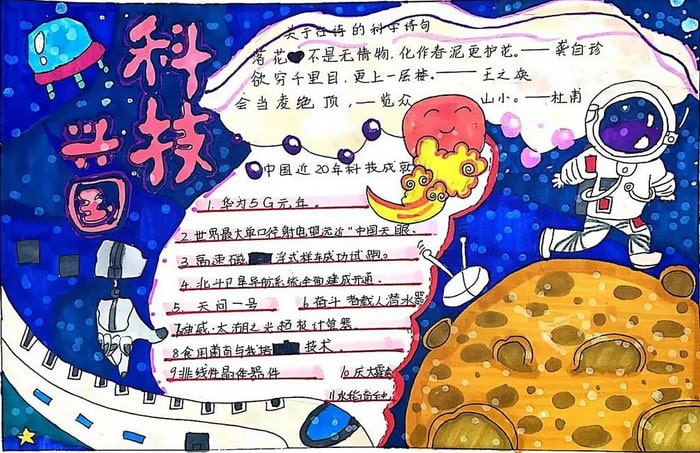 科技
兴国
关于诗的科学诗句
落花不是无情物,化作春泥更护花。——龚自珍
欲穷千里目,更上一层楼。——王之焕
会当凌绝顶,一览众山小。——杜甫
中国近20年科技成就
1. 华为5G元年。
2.世界最大单口径射电望远镜"中国天眼。
3.高速磁浮式样车成功试跑。
4.北斗卫星导航系统全面建成开通。
5、天问一号 6.奋斗者载人潜水器
7.神威·太湖之光超级计算器
8食用菌育与栽培技术
9非线性晶体器件 10庆大霉素
11水稻